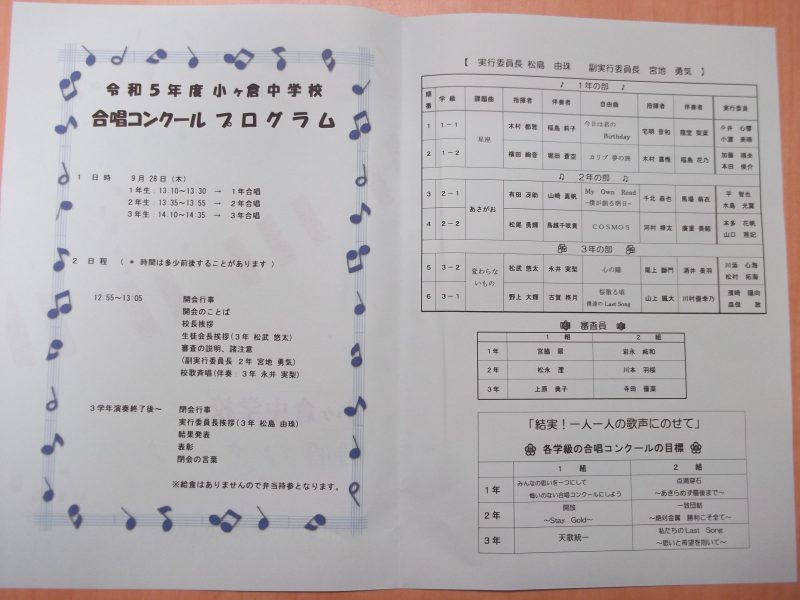 令和５年度 小ヶ倉中学校
合唱コンクール プログラム
１ 日時 ９月28日（木）
１年生：13:10〜13:30 → １年合唱
２年生：13:35〜13:55 → ２年合唱
３年生：14:10〜14:35 → ３年合唱
２ 日程 （＊ 時間は多少前後することがあります ）
12:55〜13:05 開会行事
開会のことば
校長挨拶
生徒会長挨拶（３年 松武 悠太）
審査の説明、諸注意
(副実行委員長 ２年 宮地 勇気)
校歌斉唱（伴奏：３年 永井 実梨）
３学年演奏終了後〜 閉会行事
実行委員長挨拶（３年 松島 由珠）
結果発表
表彰
閉会の言葉
※給食はありませんので弁当持参となります。
【 実行委員長 松島 由珠 副実行委員長 宮地 勇気 】
♪ １年の部 ♪
順番 学級 課題曲 指揮者 伴奏者 自由曲 指揮者 伴奏者 実行委員
1 1－1 星座 木村 都雅 福島 莉子 今日は君のBirthday 宅明 音和 龍堂 梨葉
2 1－2 横田 絢音 堀田 蒼空 カリブ 夢の旅 木村 嘉惟 福島 花乃 加藤 陽央
本田 俊介
♫ ２年の部 ♫
3 2－1 あさがお 有田 冴助 山崎 真帆 My Own Road
−僕が創る明日− 千北 恭也 馬場 萌衣 平 智也
水島 光翼
4 2－2 松尾 勇輝 鳥越千咲貴 COSMOS 河村 禅太 廣重 美結 本多 花帆
山口 雅妃
３年の部
5 3－2 変わらないもの 松武 悠太 永井 実梨 心の瞳 尾上 獅門 酒井 美羽 川添 心海
松村 拓海
6 3－1 野上 大輝 古賀 柊月 桜散る頃
僕達のLast Song 山上 颯大 川村優季乃 濱崎 陽向
審査員
１年 宮脇 翠 岩永 純和
２年 松永 澄 川本 羽桜
３年 上原 典子 寺田 優菜
「結実！一人一人の歌声にのせて」
各学級の合唱コンクールの目標
１ 組 ２ 組
１年 みんなの思いを一つにして
悔いのない合唱コンクールにしよう 点滴穿石
〜あきらめず最後まで〜
２年 開放
〜Stay Gold〜 一致団結
〜絶対金賞 勝利こそ全て〜
３年 天歌統一 私たちのLast Song
〜思いと希望を抱いて〜